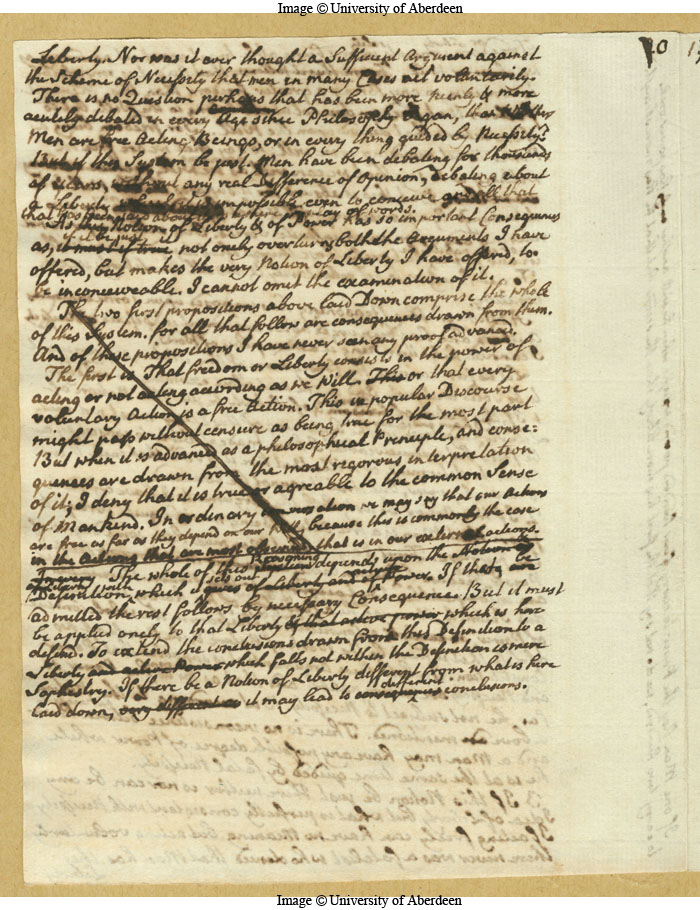 Image © University of Aberdeen
10
Liberty. Nor was it ever thought a Sufficient Argument against
the Scheme of Necessity that men in many Cases act voluntarily.
There is no Question perhaps that has been more keenly & more
acutely debated in every Age since Philosophy began, than whether
Men are free Acting Beings, or in every thing guided by Necessity?
But if this System be just. Men have been debating for thousands
of years, without any real difference of Opinion, debating about
a Liberty which it is impossible even to conceive and all that
that has been said about it is mere play of words.
As this Notion of Liberty & of Power has so important Consequences
if it be just
as, it must if true not onely overturns both the Arguments I have
offered, but makes the very Notion of Liberty I have offered, to
be inconceiveable. I cannot omit the examination of it.
The two first propositions above laid Down comprise the whole
of this System. for all that follow are consequences drawn from them.
And of these propositions I have never seen any proof advanced.
The first is That freedom or Liberty consists in the power of
acting or not acting according as we Will. This or that every
voluntary Action is a free Action. This in popular Discourse
might pass without censure as being true for the most part
But when it is advanced as a philosophical Principle, and conse=
quences are drawn from the most regorous interpretation
of it; I deny that it is true or agreable to the common Sense
of Mankind. In ordinary we may say that our Actions
are free as far as they depend on our Will, because this is commonly the case
in the Actions that are most that is in our external actions.
Reasoning
The whole of this depends upon the Notion
sets out
Definition which it gives of Liberty and of Power. If these are
admitted the rest follows by necessary Consequence. But it must
be applied onely to that Liberty & that active power which is here
defind. To extend the conclusions drawn from this Definition to a
Liberty and active Power which falls not within the Definition is mere
Sophestry. If there be a Notion of Liberty different from what is here
different
laid down, very different it may lead to consequences conclusions.
Image © University of Aberdeen